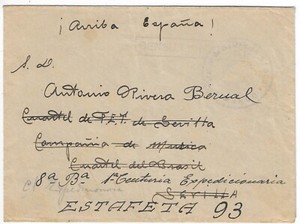 ¡Arriba España!
S. D.
Antonio Rivera Bernal
Cuartel de F.E.T. de Sevilla
Compañia de Musica
Cuartel del Brasil
8ª Bª 1ª Centuria Expedicionaria
SEVILLA
ESTAFETA 93